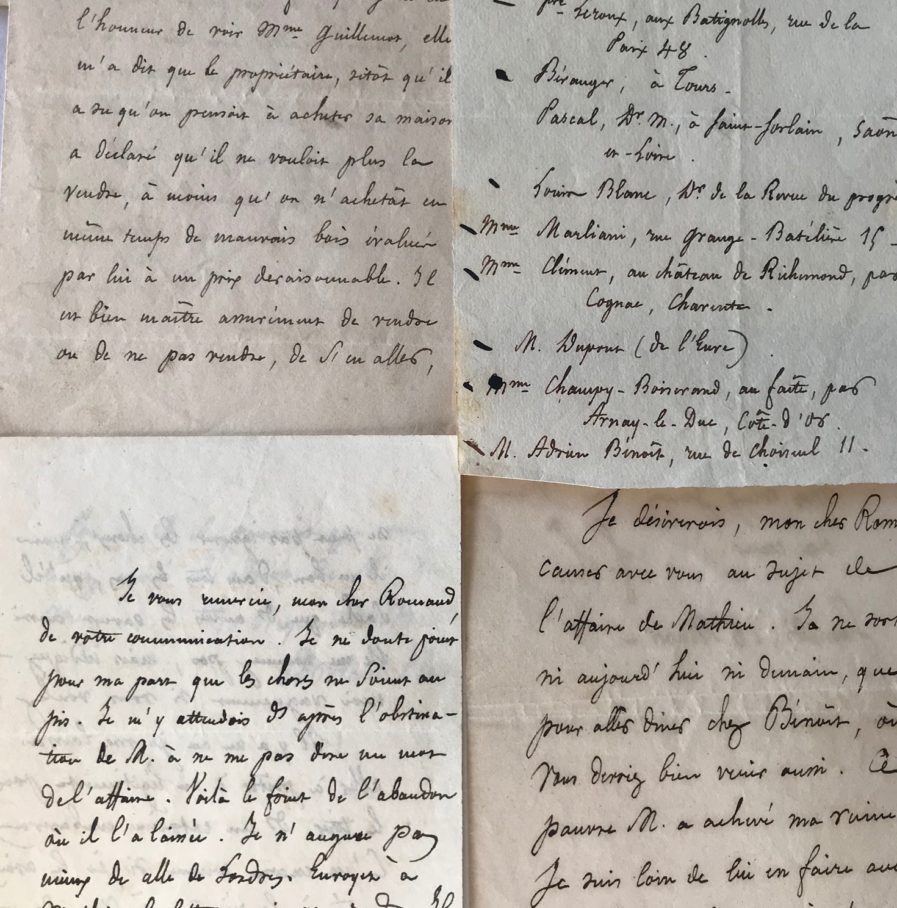 l'honneur de voir Mme Guillemot, elle
m'a dit que le propriétaire, sitôt qu'il
a su qu'on pensoit à acheter sa maison
a déclaré qu'il ne vouloit plus la
vendre, à moins qu'on n'achetât en
même temps de mauvais bois évalués
par lui à un prix déraisonnable. Il
est bien maître assurément de vendre
ou de ne pas vendre, de
Leroux, aux Batignolles, rue de la
Paix 48.
Béranger, à Tours.
Pascal, Dr. M., à Saint-Sorlain, Saône
et-Loire.
Louis Blanc, Dr. de la Revue du progrè
Mme Marliani, rue grange-Batélière 15
Mme Clément, au château de Richemond, par
Cognac, Charente.
M. Dupont (de l'Eure)
Mme Champy-Boiserand, au faîte, par
Arnay-le-Duc, Côte-d'Or.
M. Adrien Bénoît, rue de Choiseul 11.
Je vous remercie, mon cher Romand
de votre communication. Je ne doute point
pour ma part que les choses ne soient au
pis. Je m'y attendois d'après l'obstina-
tion de M. à ne me pas dire un mot
de l'affaire. Voilà le point de l'abandon
où il l'a laissée. Je n'augure pas
mieux de celle de Londres. Envoyez à
Je désirerois, mon cher Rom
causer avec vous au sujet de
l'affaire de Mathieu. Je ne sors
ni aujourd'hui ni demain, que
pour aller dîner chez Bénoît, où
vous devriez bien venir aussi. Ce
pauvre M. a achevé ma ruine
Je suis loin de lui en faire auc